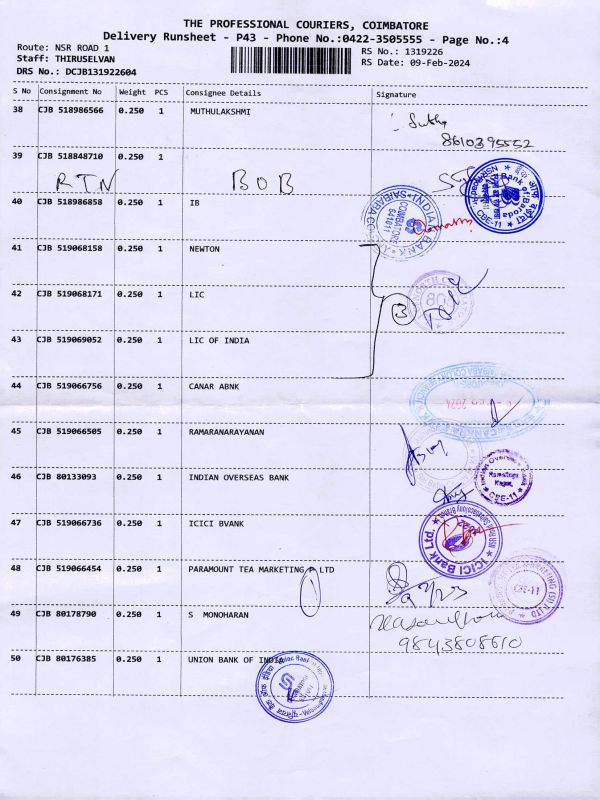 THE PROFESSIONAL COURIERS, COIMBATORE
Delivery Runsheet - P43 - Phone No.:0422-3505555 - Page No.:4
Route: NSR ROAD 1
RS No.: 1319226
Staff: THIRUSELVAN
RS Date: 09-Feb-2024
DRS No.: DCJB131922604
S No Consignment No Weight PCS Consignee Details Signature
38 CJB 518986566 0.250 1 MUTHULAKSHMI
8610395552
39 CJB 518848710 0.250 1
RTN BOB
Bank of Baroda
CBE-11
40 CJB 518986858 0.250 1 IB
INDIAN BANK
COIMBATORE
641011
41 CJB 519068158 0.250 1 NEWTON
42 CJB 519068171 0.250 1 LIC
3
43 CJB 519069052 0.250 1 LIC OF INDIA
44 CJB 519066756 0.250 1 CANAR ABNK
45 CJB 519066505 0.250 1 RAMARANARYANAN
46 CJB 80133093 0.250 1 INDIAN OVERSEAS BANK
CBE-11
47 CJB 519066736 0.250 1 ICICI BVANK
ICICI Bank Ltd.
48 CJB 519066454 0.250 1 PARAMOUNT TEA MARKETING P LTD
CBE-11
49 CJB 80178790 0.250 1 S MONOHARAN
9843808610
50 CJB 80176385 0.250 1 UNION BANK OF INDIA